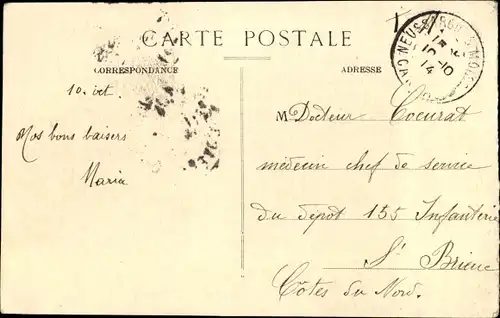 CARTE POSTALE
CORRESPONDANCE
ADRESSE
10. oct.
Mes bons baisers
Maria
M Docteur Coeurat
médecin chef de service
du dépôt 155 Infanterie
St Brieuc
Côtes du Nord.
10-10
14